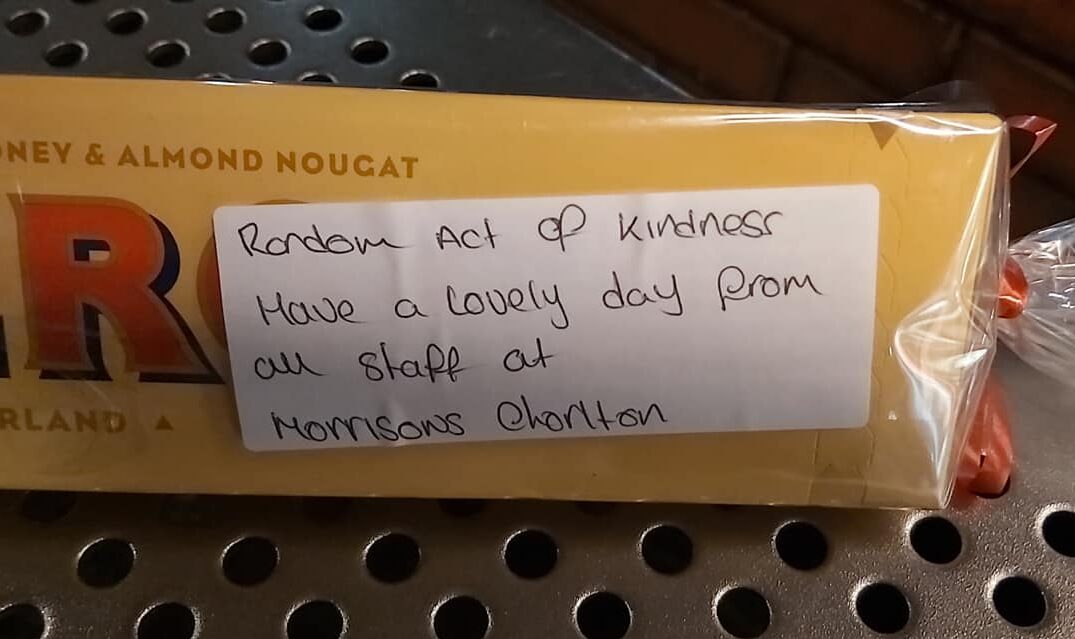 ONEY & ALMOND NOUGAT
R
Random Act of Kindness
Have a lovely day from
all staff at
Morrisons Chorlton
RLAND